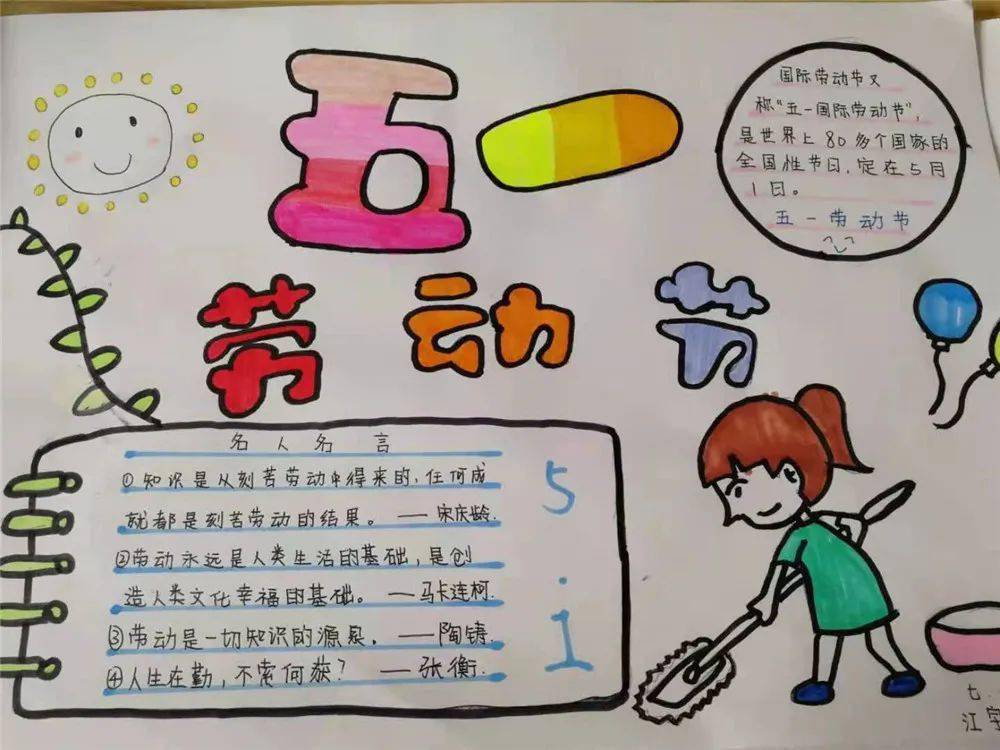 五一
劳动节
国际劳动节又
称“五一国际劳动节”,
是世界上80多个国家的
全国性节日,定在5月
1日。
五一劳动节
名人名言
①知识是从刻苦劳动中得来的,任何成
就都是刻苦劳动的结果。——宋庆龄.
②劳动永远是人类生活的基础,是创
造人类文化幸福的基础。——马卡连柯.
③劳动是一切知识的源泉.——陶铸.
④人生在勤,不索何获?——张衡.
5
.
1
七.
江宇